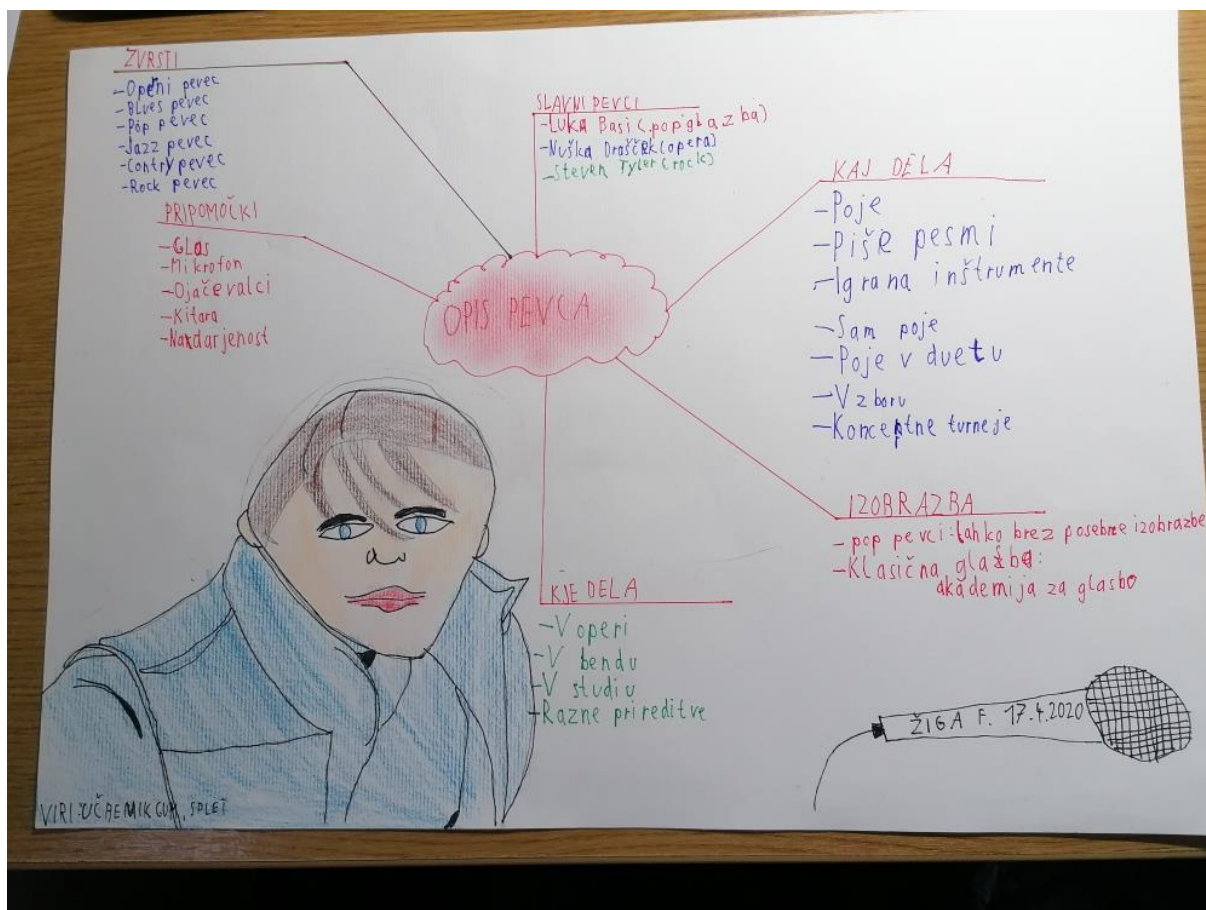 ZVRSTI
-Operni pevec
-Blues pevec
-Pop pevec
-Jazz pevec
-Contry pevec
-Rock pevec
PRIPOMOČKI
-Glas
-Mikrofon
-Ojačevalci
-Kitara
-Nardarjenost
SLAVNI PEVCI
-Luka Basi (pop glazba)
-Nuška Drašček (opera)
-Steven Tyler (rock)
OPIS PEVCA
KAJ DELA
-Poje
-Piše pesmi
-Igrana inštrumente
-Sam poje
-Poje v duetu
-V zboru
-Konceptne turneje
IZOBRAZBA
- pop pevci: lahko brez posebne izobrazbe
-Klasična glasba:
akademija za glasbo
KJE DELA
-V operi
-V bendu
-V studiu
-Razne prireditve
ŽIGA F. 17.4.2020
VIRI: UČBENIK GUM, SPLET